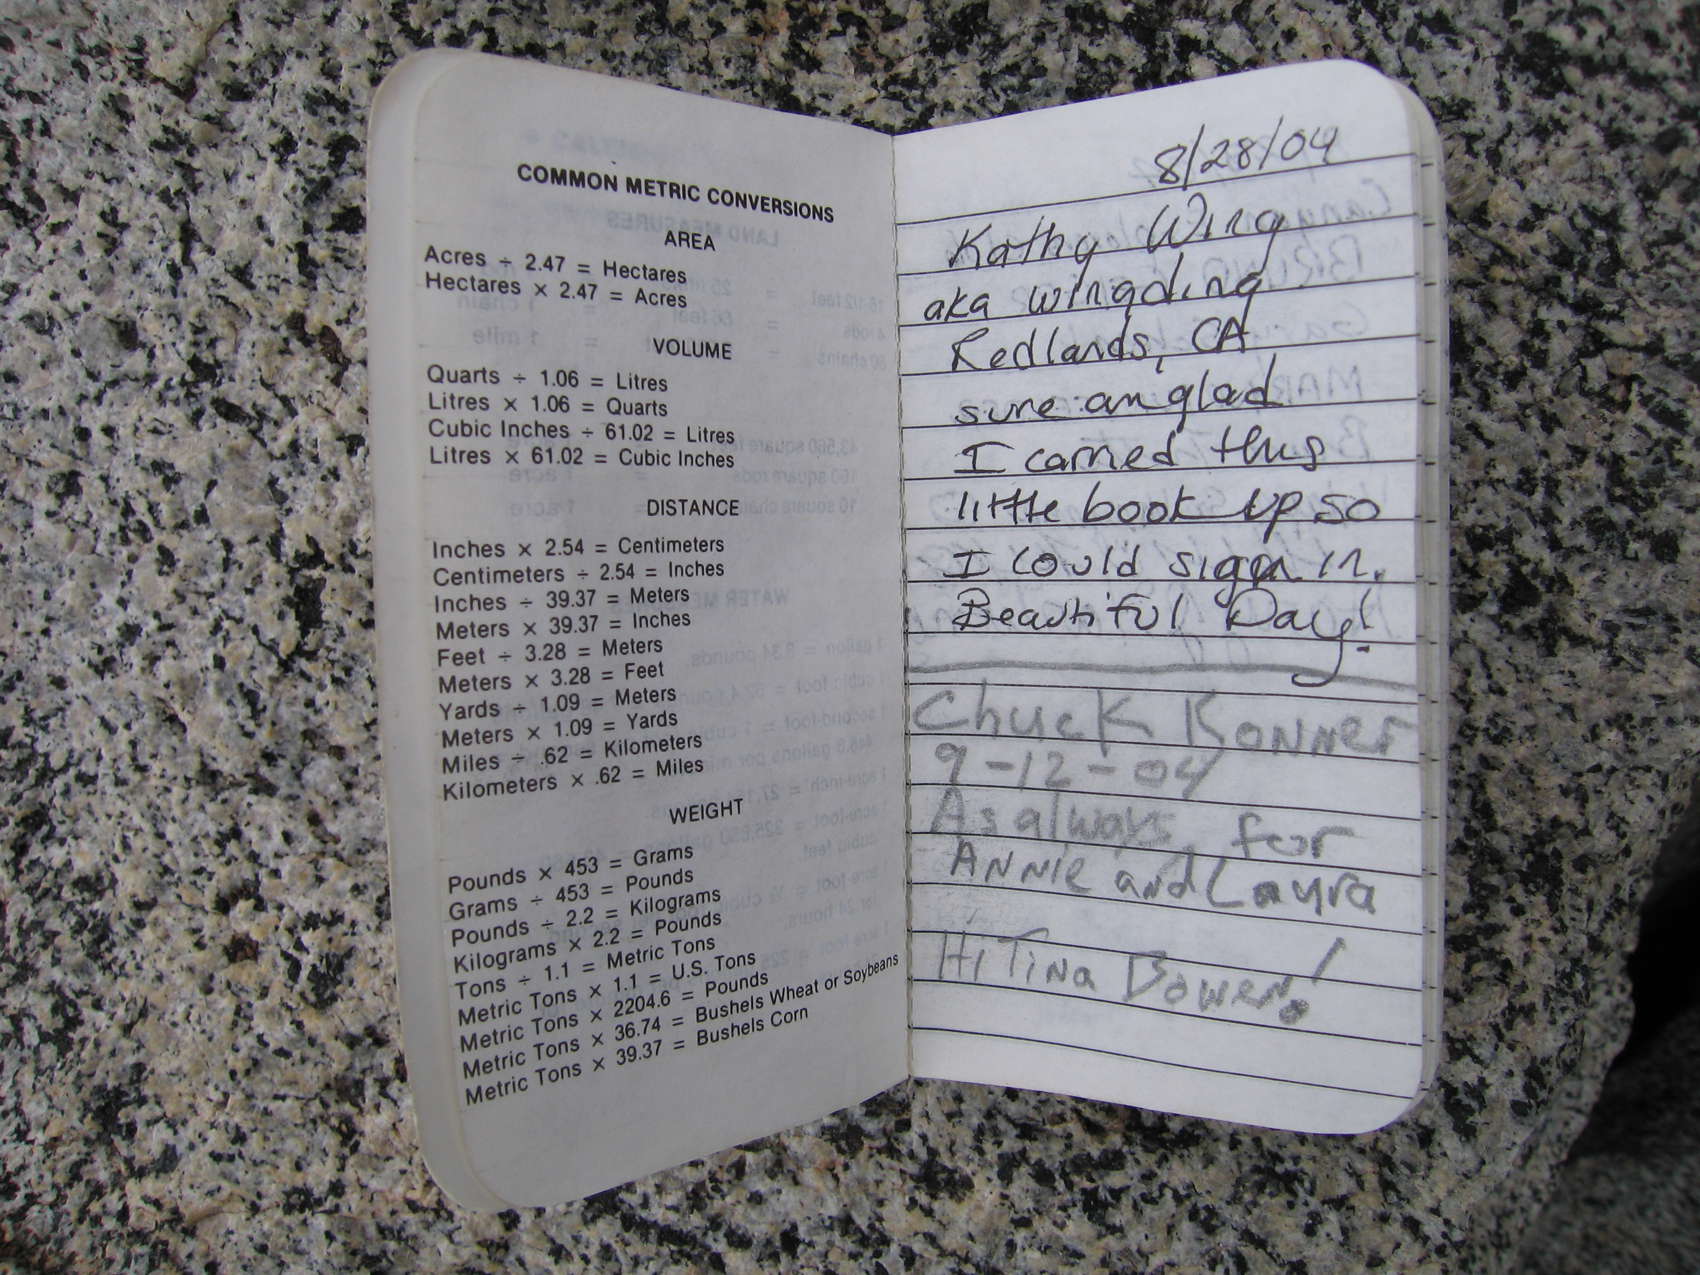 COMMON METRIC CONVERSIONS
AREA
Acres ÷ 2.47 = Hectares
Hectares × 2.47 = Acres
VOLUME
Quarts ÷ 1.06 = Litres
Litres × 1.06 = Quarts
Cubic Inches ÷ 61.02 = Litres
Litres × 61.02 = Cubic Inches
DISTANCE
Inches × 2.54 = Centimeters
Centimeters ÷ 2.54 = Inches
Inches ÷ 39.37 = Meters
Meters × 39.37 = Inches
Feet ÷ 3.28 = Meters
Meters × 3.28 = Feet
Yards ÷ 1.09 = Meters
Meters × 1.09 = Yards
Miles ÷ .62 = Kilometers
Kilometers × .62 = Miles
WEIGHT
Pounds × 453 = Grams
Grams ÷ 453 = Pounds
Pounds ÷ 2.2 = Kilograms
Kilograms × 2.2 = Pounds
Tons ÷ 1.1 = Metric Tons
Metric Tons × 1.1 = U.S. Tons
Metric Tons × 2204.6 = Pounds
Metric Tons × 36.74 = Bushels Wheat or Soybeans
Metric Tons × 39.37 = Bushels Corn
8/28/04
Kathy Wing
aka wingding
Redlands, CA
sure am glad
I carried this
little book up so
I could sign in.
Beautiful Day!
Chuck Bonner
9-12-04
As always, for
Annie and Laura
Hi Tina Bowen!